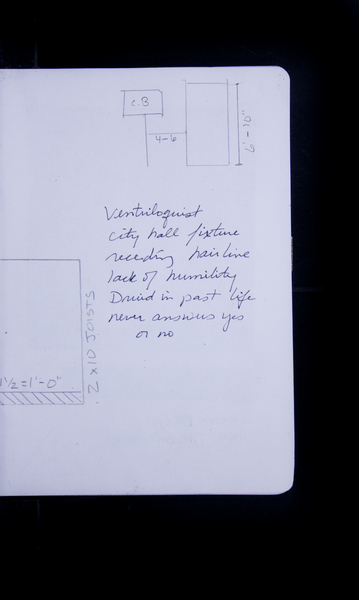 C.B
4-6
6'-10"
Ventriloquist
city hall fixture
receding hairline
lack of humility
Druid in past life
never answers yes
or no
2 x 10 JOISTS
1 1/2 = 1'-0"